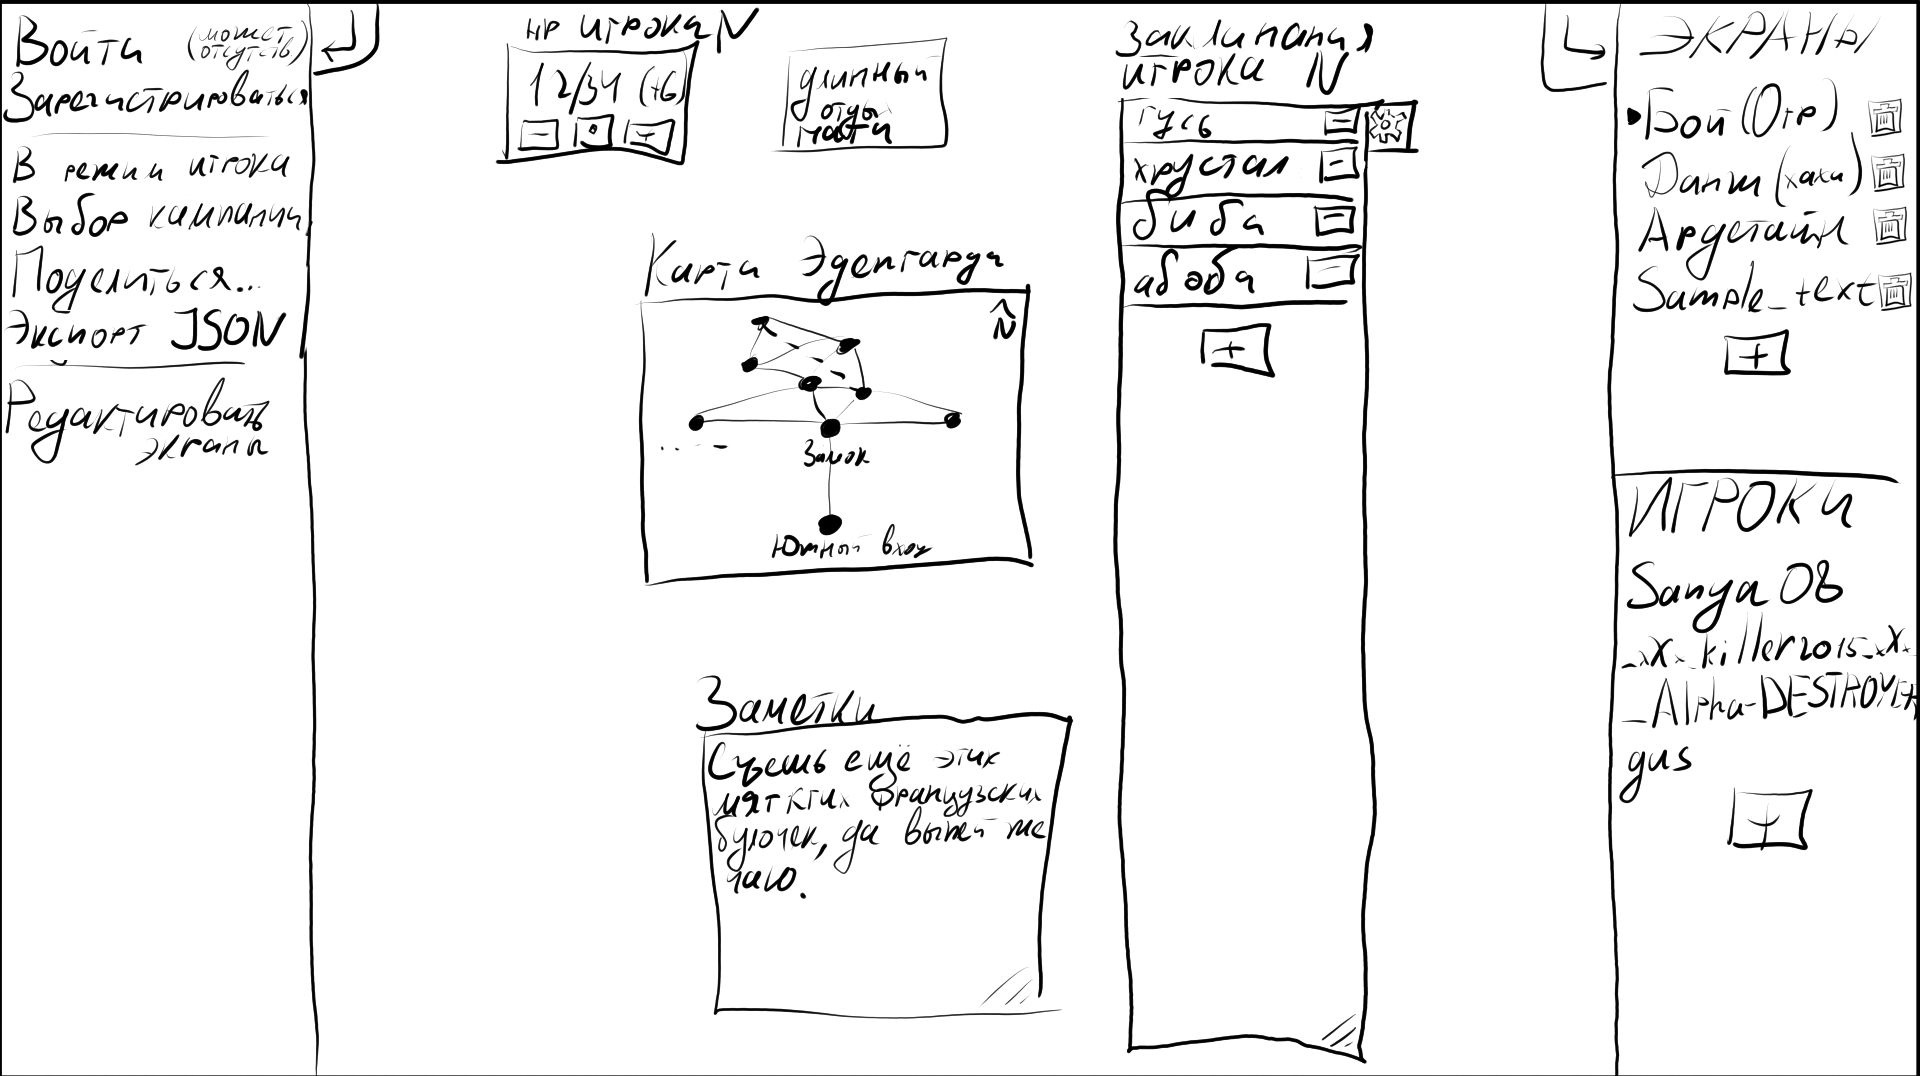 Войти (может отсутств)
Зарегистрироваться
В режим игрока
Выбор кампании
Поделиться...
Экспорт JSON
Редактировать
экраны
HP игрока N
12/34 (+6)
- • +
длинный
отдых
пати
Карта Эденгарда
N
Замок
Южный вход
Заметки
Съешь ещё этих
мягктих французских
булочек, да выпей же
чаю.
Заклинания
игрока N
гусь -
хрустал -
биба -
абоба -
+
ЭКРАНЫ
Бой (Отр)
Данж (хаха)
Ардстайл
Sample_text
+
ИГРОКИ
Sanya08
_xXx_killer2015_xXx_
_Alpha-DESTROYER
gus
+